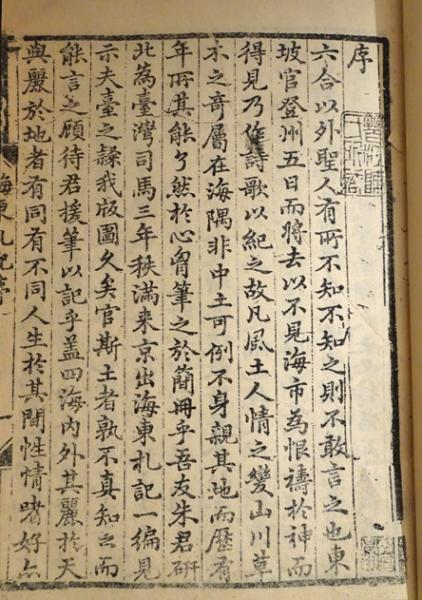 序
六合以外聖人有所不知不知之則不敢言之也東
坡官登州五日而將去以不見海市為恨禱於神而
得見乃作詩歌以紀之故凡風土人情之變山川草
木之奇屬在海隅非中土可例不身親其地而歷有
年所其能了然於心胷筆之於簡冊乎吾友朱君研
北為臺灣司馬三年秩滿来京出海東札記一編見
示夫臺之隸我版圖久矣官斯土者孰不真知之而
能言之顧待君援筆以記乎盖四海内外其麗於天
與麗於地者有同有不同人生於其間性情嗜好亦
海東札記序
一